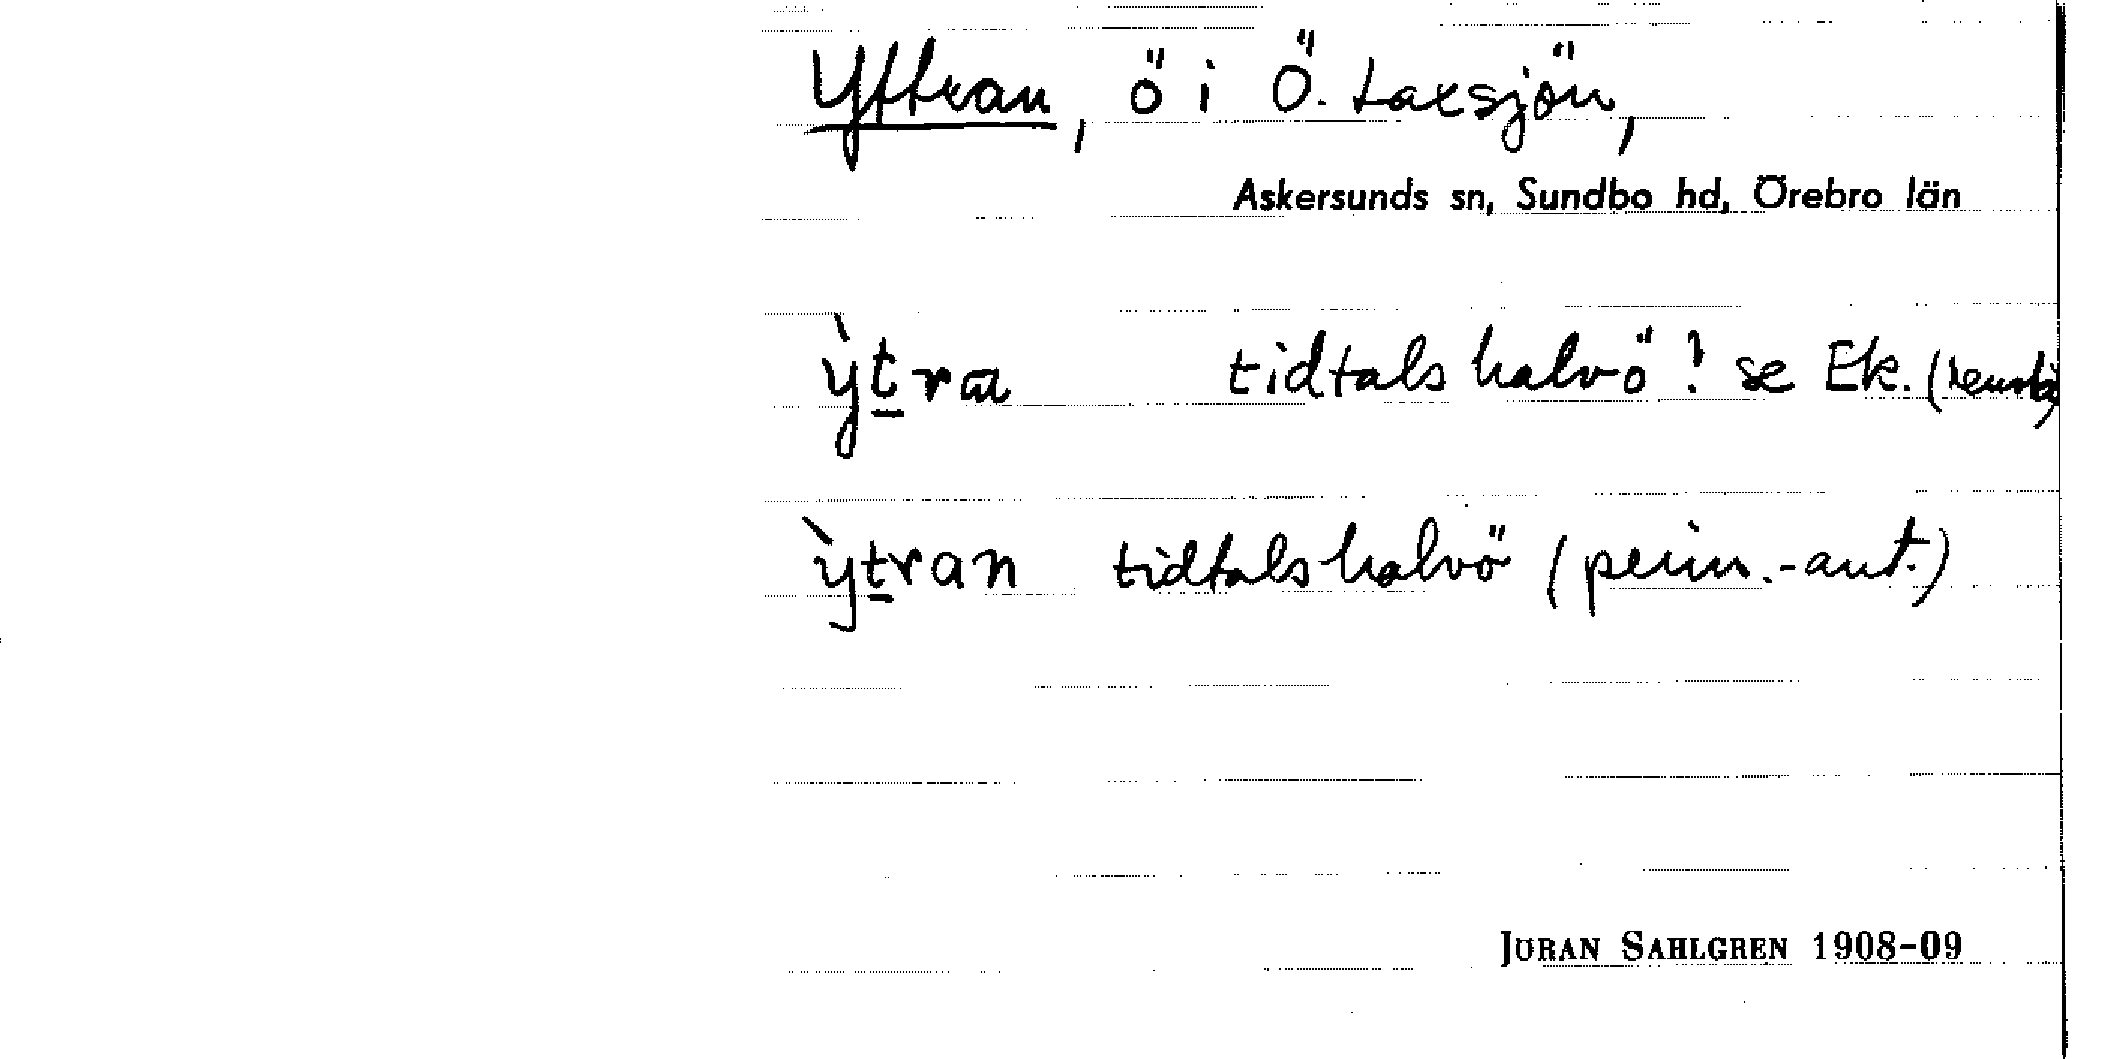 Yttran, ö i Ö. Laxsjön,
Askersunds sn, Sundbo hd, Örebro län
ỳt̲ra tidtals halvö! se Ek.
ỳt̲ran tidtals halvö (penn.-ant.)
JÖRAN SAHLGREN 1908-09